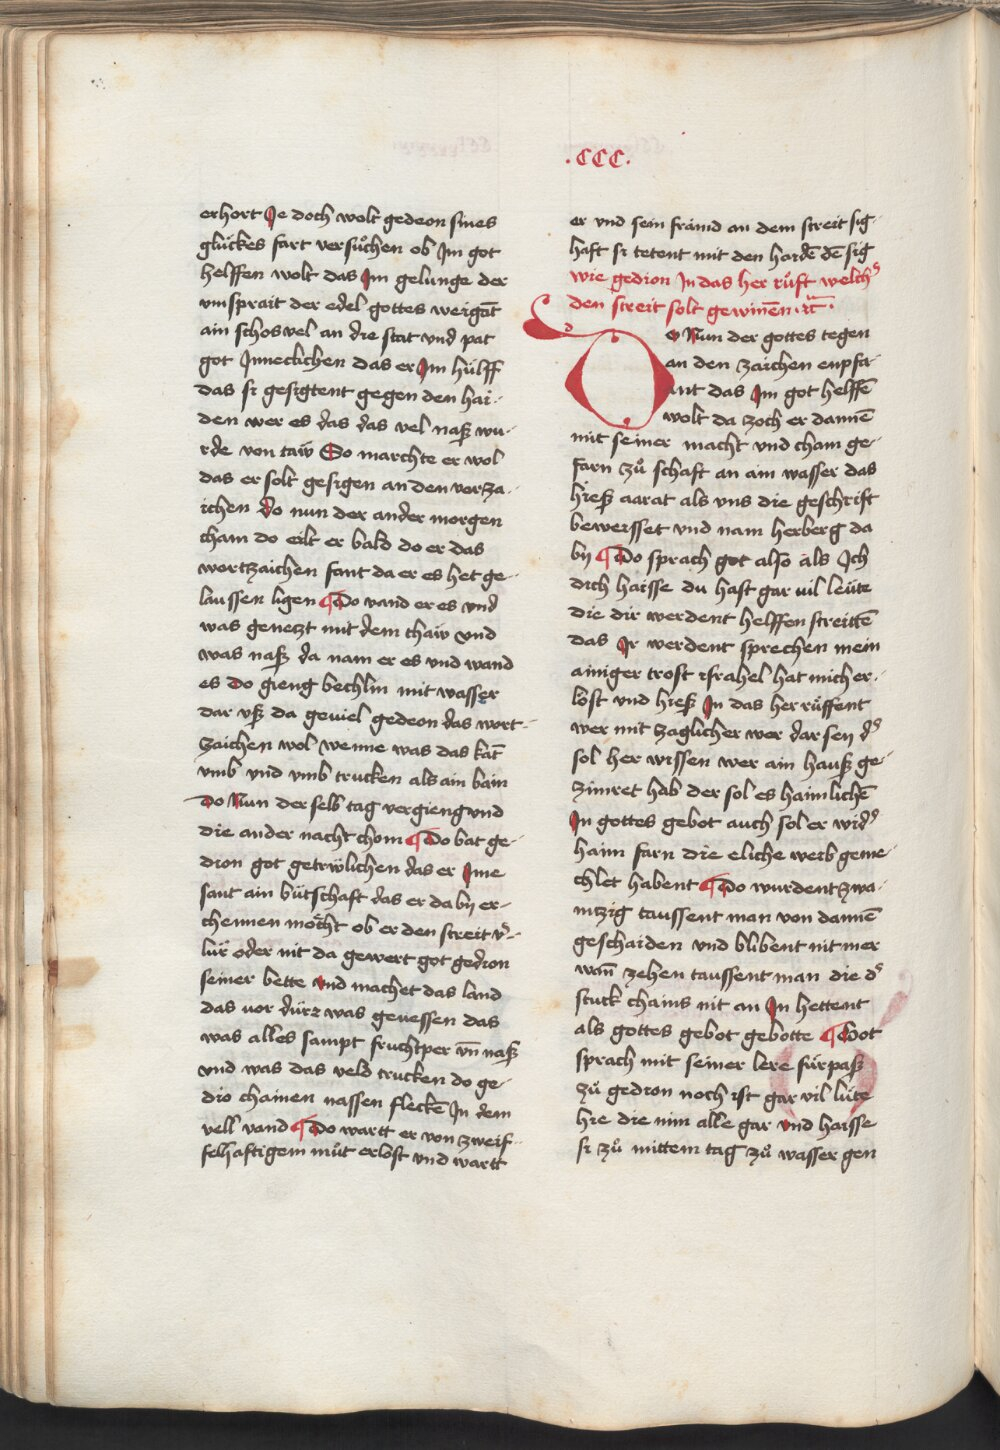 .CCC.
erhort Je doch wolt gedeon sines
glúckes fart versuͦchen ob Jm got
helffen wolt das Jm gelunge der
vmsprait der edel gottes weigāt
ain schos vel an die stat vnd pat
got Jnneclichen das er Jm húlff
das si gesigtent gegen den hai-
den wer es das das vel naß wu-
rde von taẅ So marchte er wol
das er solt gesigen an den vorza-
ichen do nun der ander morgen
cham do erlt er bald do er das
wortzaichen fant da er es het ge-
laussen ligen ¶ Do vand er es vnd
was genezt mit dem thaiv vnd
was naß da nam er es vnd wand
es do gieng bechlin mit wasser
dar vß da geviel gedeon das wort-
zaichen wol wenne was das katˉ
vmb vnd vmb trucken als ain bain
Do Nun der selb tag vergieng vnd
die ander nacht chom ¶ Do bat ge-
dion got getrẅlichen das er Jme
sant ain bútschaft das er da bij er-
chennen moͤcht ob er den streit v͛-
lúr oder nit da gewert got gedion
seiner bette vnd machet das land
das vor dúrz was gevessen das
was alles sampt fruchtper vn̄ naß
vnd was das veld trucken do ge-
dio chainen nassen fleckē Jn dem
vell vand ¶ Do wartt er von zweif-
felhaftigem muͦt erlost vnd wartt
er vnd sein fránid an dem streit sig-
haft si tetent mit den hardē dē sig
wie gedion Jn das her ruͤft welch͛
den streit solt gewinēn ꝛc̄.
Do Nun der gottes tegen
an den zaichen enpfa-
unt das Jm got helffē
wolt da zoch er dannē
mit seiner macht vnd cham ge-
farn zuͦ schaft an ain wasser das
hieß aarat als vns die geschrift
beweisset vnd nam herberg da
bij ¶ Do sprach got also als Jch
dich haisse du hast gar vil leúte
die dir werdent helffen streittē
das Jr werdent sprechen mein
ainiger trost israhel hat mich er-
lost vnd hieß Jn das her ruͤffent
wer mit zaglicher wer dar sen d͛
sol her wissen wer ain hauß ge-
zimret hab der sol es haimlichē
Jn gottes gebot auch sol er wid͛
haim farn die eliche weib geme-
chlet habent ¶ Do wurdent zwa-
inzig taussent man von dannē
geschaiden vnd blibent nit mer
wan̄ zehen taussent man die d͛
stuck chains nit an Jn hettent
als gottes gebot gebotte ¶ Got
sprach mit seiner lere fúrpaß
zuͦ gedion noch ist gar vil lúte
hie die nim alle gar vnd haisse
si zuͦ mittem tag zuͦ wasser gen